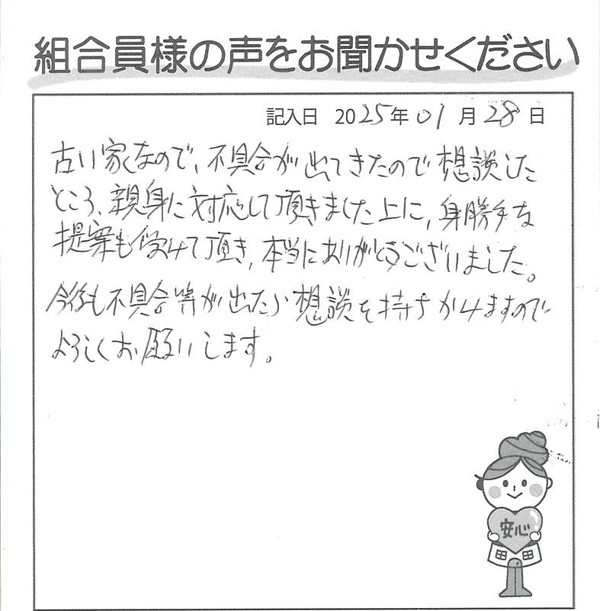 組合員様の声をお聞かせください
記入日 2025年01月28日
古い家なので、不具合が出てきたので想談した
ところ、親身に対応して頂きました上に、身勝手な
提案も受けて頂き、本当にありがとうございました。
今後も不具合等が出たら想談を持ちかけますので
よろしくお願いします。
安心